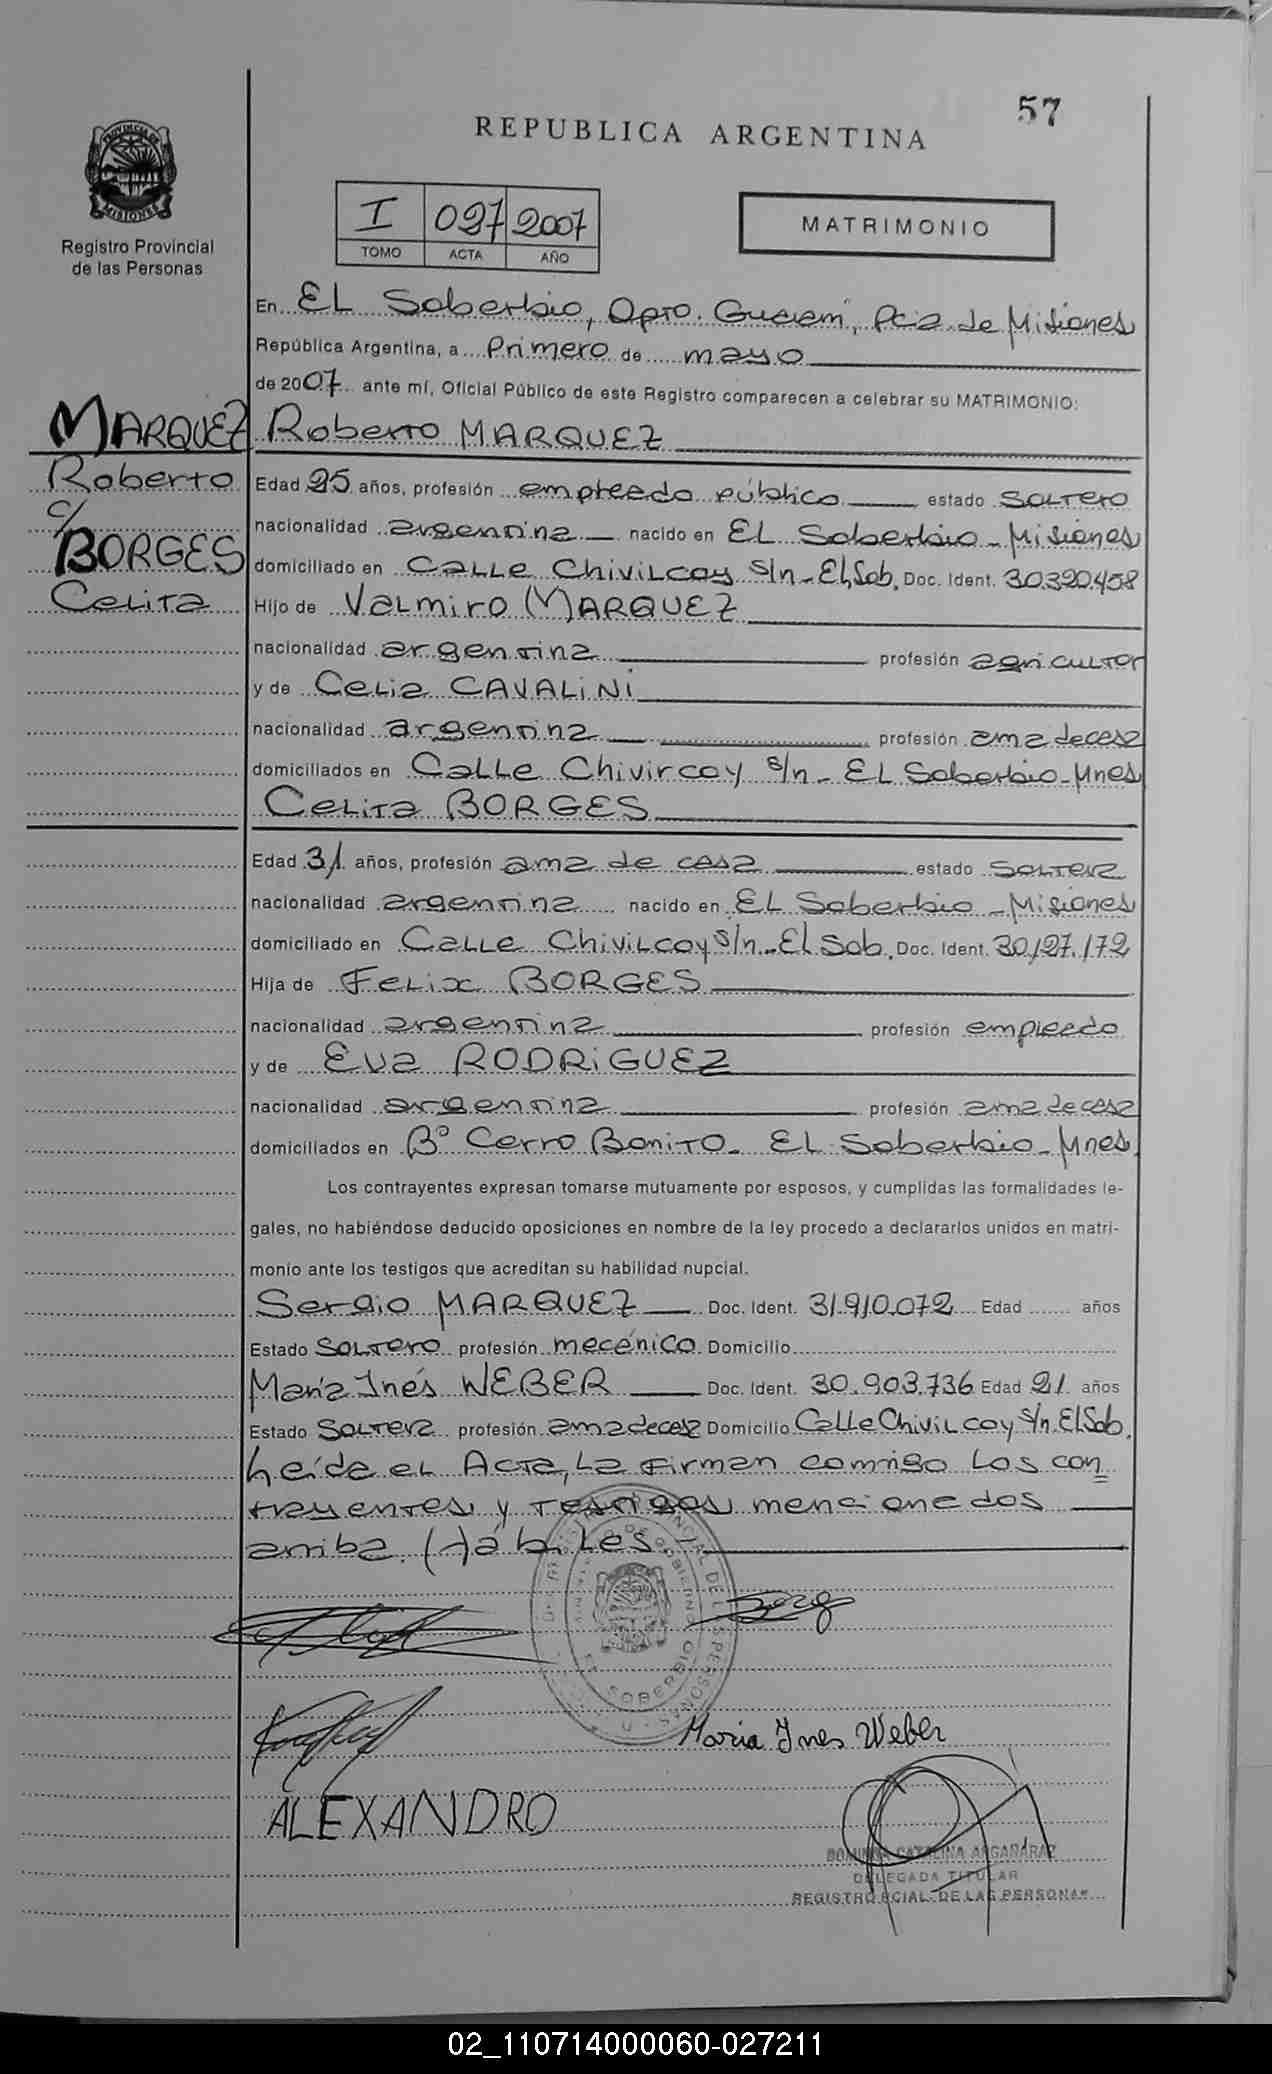 57
REPUBLICA ARGENTINA
PROVINCIA DE
MISIONES
Registro Provincial
de las Personas
I 027 2007
TOMO ACTA AÑO
MATRIMONIO
En EL Soberbio, Dpto. Guaraní, Pcia de Misiones
República Argentina, a Primero de mayo
de 2007 ante mí, Oficial Público de este Registro comparecen a celebrar su MATRIMONIO:
MARQUEZ
Roberto
c/
BORGES
Celita
Roberto MARQUEZ
Edad 25 años, profesión empleado público estado soltero
nacionalidad argentina nacido en EL Soberbio - Misiones
domiciliado en Calle Chivilcoy s/n - El Sob. Doc. Ident. 30.320.458
Hijo de Valmiro MARQUEZ
nacionalidad argentina profesión agricultor
y de Celia CAVALINI
nacionalidad argentina profesión ama de casa
domiciliados en Calle Chivircoy s/n - EL Soberbio - Mnes
Celita BORGES
Edad 31 años, profesión ama de casa estado soltera
nacionalidad argentina nacido en EL Soberbio - Misiones
domiciliado en Calle Chivilcoy s/n - El Sob. Doc. Ident. 30.127.172
Hija de Felix BORGES
nacionalidad argentina profesión empleado
y de Eva RODRIGUEZ
nacionalidad argentina profesión ama de casa
domiciliados en Bº Cerro Bonito - EL Soberbio - Mnes.
Los contrayentes expresan tomarse mutuamente por esposos, y cumplidas las formalidades le-
gales, no habiéndose deducido oposiciones en nombre de la ley procedo a declararlos unidos en matri-
monio ante los testigos que acreditan su habilidad nupcial.
Sergio MARQUEZ Doc. Ident. 31.910.072 Edad años
Estado soltero profesión mecánico Domicilio
María Inés WEBER Doc. Ident. 30.903.736 Edad 21 años
Estado soltera profesión ama de casa Domicilio Calle Chivilcoy s/n. El Sob.
Leída el Acta, la firman conmigo los con
trayentes y testigos mencionados
arriba (hábiles.-
Maria Ines Weber
ALEXANDRO
CATALINA ARGAÑARAZ
DELEGADA TITULAR
REGISTRO PCIAL. DE LAS PERSONAS
02_110714000060-027211